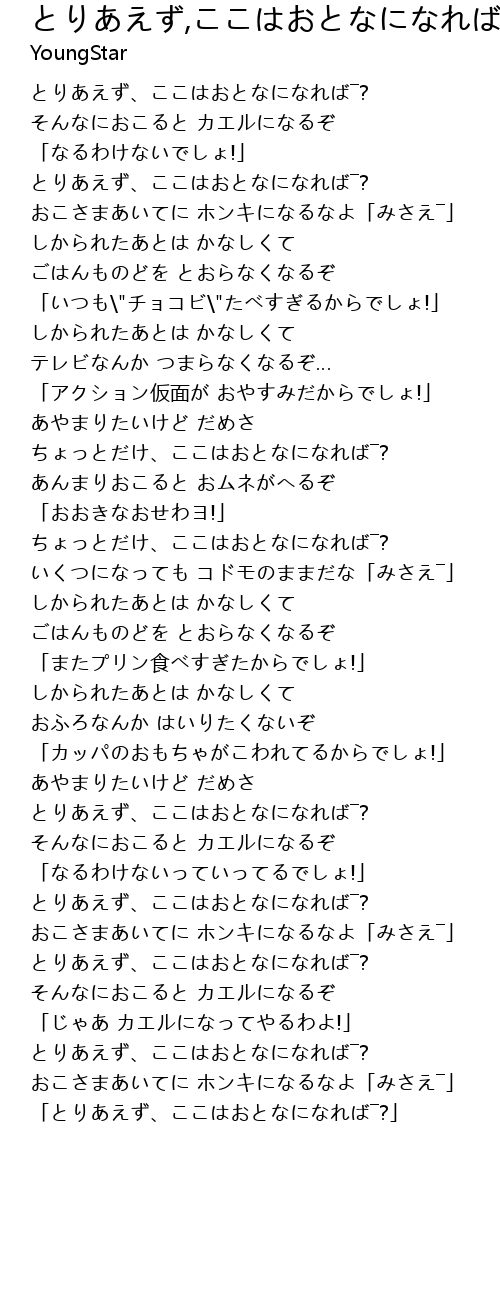 とりあえず,ここはおとなになれば
YoungStar
とりあえず、ここはおとなになれば‾?
そんなにおこると カエルになるぞ
「なるわけないでしょ!」
とりあえず、ここはおとなになれば‾?
おこさまあいてに ホンキになるなよ「みさえ‾」
しかられたあとは かなしくて
ごはんものどを とおらなくなるぞ
「いつも\"チョコビ\"たべすぎるからでしょ!」
しかられたあとは かなしくて
テレビなんか つまらなくなるぞ...
「アクション仮面が おやすみだからでしょ!」
あやまりたいけど だめさ
ちょっとだけ、ここはおとなになれば‾?
あんまりおこると おムネがへるぞ
「おおきなおせわヨ!」
ちょっとだけ、ここはおとなになれば‾?
いくつになっても コドモのままだな「みさえ‾」
しかられたあとは かなしくて
ごはんものどを とおらなくなるぞ
「またプリン食べすぎたからでしょ!」
しかられたあとは かなしくて
おふろなんか はいりたくないぞ
「カッパのおもちゃがこわれてるからでしょ!」
あやまりたいけど だめさ
とりあえず、ここはおとなになれば‾?
そんなにおこると カエルになるぞ
「なるわけないっていってるでしょ!」
とりあえず、ここはおとなになれば‾?
おこさまあいてに ホンキになるなよ「みさえ‾」
とりあえず、ここはおとなになれば‾?
そんなにおこると カエルになるぞ
「じゃあ カエルになってやるわよ!」
とりあえず、ここはおとなになれば‾?
おこさまあいてに ホンキになるなよ「みさえ‾」
「とりあえず、ここはおとなになれば‾?」